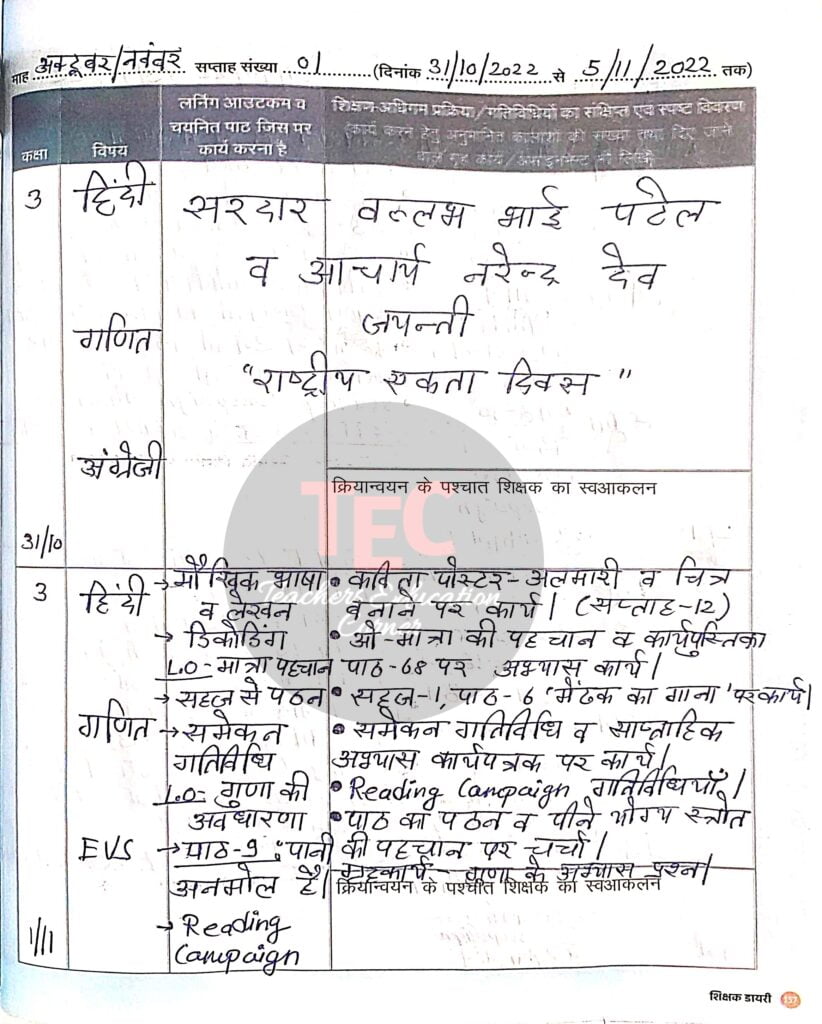 माह अक्टूबर/नवंबर सप्ताह संख्या 01 (दिनांक 31/10/2022 से 5/11/2022 तक)
कक्षा विषय लर्निंग आउटकम व चयनित पाठ जिस पर कार्य करना है
शिक्षण अधिगम प्रक्रिया/गतिविधियों का संक्षिप्त एवं स्पष्ट विवरण
(कार्य करने हेतु अनुमानित कालांशों की संख्या तथा दिए जाने
वाले गृह कार्य/असाइनमेंट भी लिखें)
3 हिंदी सरदार वल्लभ भाई पटेल
व आचार्य नरेन्द्र देव
जयन्ती
गणित
"राष्ट्रीय एकता दिवस"
अंग्रेजी
क्रियान्वयन के पश्चात शिक्षक का स्वआकलन
TEC
Teachers Education
Corner
31/10
3 हिंदी → मौखिक भाषा • कविता पोस्टर - अलमारी व चित्र
व लेखन बनाने पर कार्य। (सप्ताह-12)
→ डिकोडिंग • ओ-मात्रा की पहचान व कार्यपुस्तिका
L.O - मात्रा पहचान पाठ-68 पर अभ्यास कार्य।
→ सहज से पठन • सहज-1, पाठ-6 'मेंढक का गाना' पर कार्य।
गणित → समेकन • समेकन गतिविधि व साप्ताहिक
गतिविधि अभ्यास कार्यपत्रक पर कार्य।
L.O- गुणा की • Reading Campaign गतिविधियाँ।
अवधारणा • पाठ का पठन व पीने योग्य स्त्रोत
EVS → पाठ-9 'पानी की पहचान पर चर्चा।
अनमोल है। गृहकार्य- गुणा के अभ्यास प्रश्न।
क्रियान्वयन के पश्चात शिक्षक का स्वआकलन
→ Reading
1/11 Campaign
शिक्षक डायरी 137